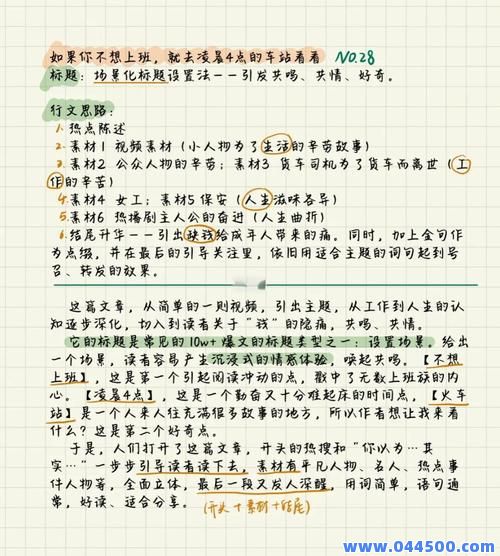 如果你不想上班，就去凌晨4点的车站看看 NO.28
标题：场景化标题设置法——引发共鸣、共情、好奇。
行文思路：
1. 热点陈述
2. 素材1 视频素材（小人物为了生活的辛劳故事）
3. 素材2 公众人物的辛劳；素材3 货车司机为了货车而离世（工
作的辛苦）
4. 素材4 女工；素材5 保安（人生滋味各异）
5. 素材6 热播剧主人公的奋进（人生曲折）
6. 结尾升华——引出缺钱给成年人带来的痛。同时，加上金句作
为点缀，并在最后的引导关注里，依旧用适合主题的词句起到号
召、转发的效果。
这篇文章，从简单的一则视频，引出主题，从工作到人生的认
知逐步深化，切入到读者关于“钱”的隐痛，共鸣、共情。
它的标题是常见的10w+爆文的标题类型之一：设置场景。给出
一个场景，读者容易产生沉浸式的情感体验，唤起共鸣。【不想
上班】，这是第一个引起阅读冲动的点，戳中了无数上班族的内
心。【凌晨4点】，这是一个勤奋又十分难起床的时间点，【火车
站】是一个人来人往充满很多故事的地方，所以作者想让我来看
什么？这是第二个好奇点。
于是，人们打开了这篇文章，开头的热搜和“你以为…其
实…”一步步引导读者读下去，素材有平凡人物、名人、热点事
件人物等，全面立体，最后一段又发人深醒，用词简单，语句通
常，好读、适合分享。
(开头+素材+结尾)
www.044500.com